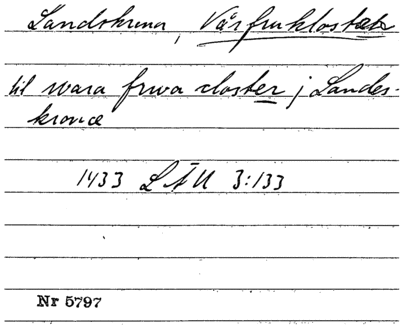 Landskrona, Vårfruklostret
til wara frwa closter j Landes-
kronæ
1433 LÄU 3:133
Nr 5797